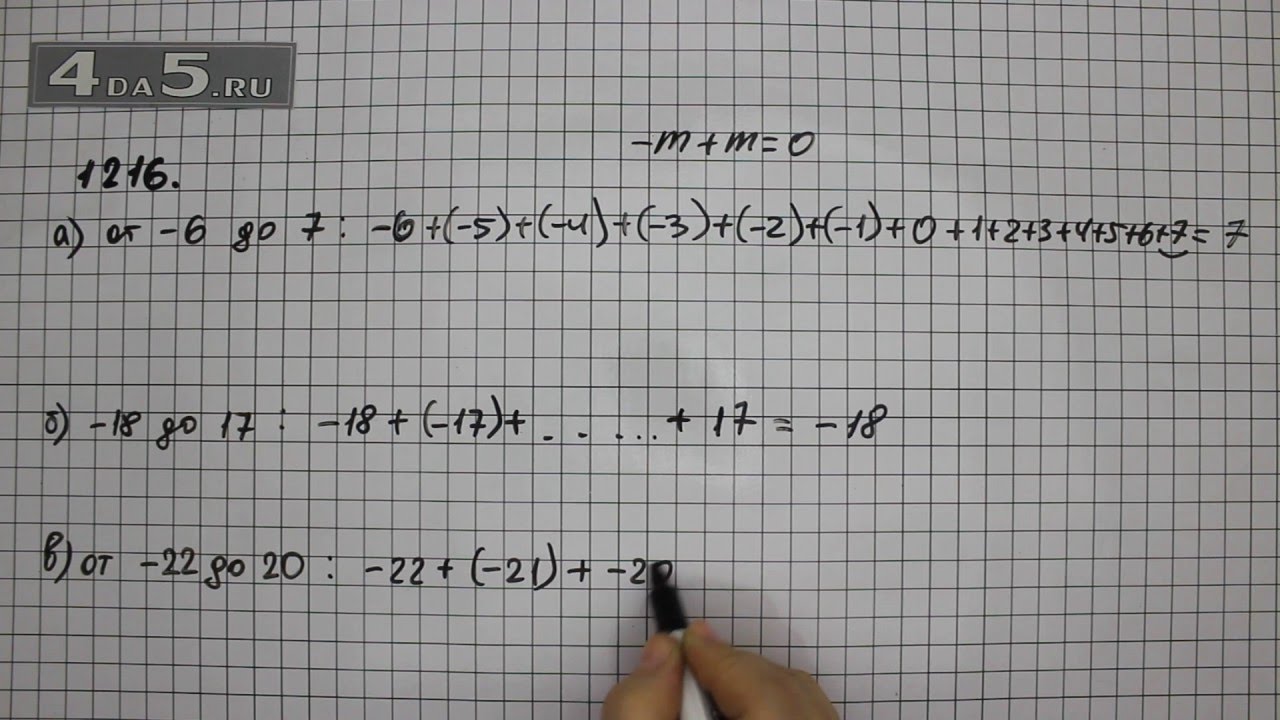 4DA5.RU
-m+m=0
1216.
а) от -6 до 7: -6+(-5)+(-4)+(-3)+(-2)+(-1)+0+1+2+3+4+5+6+7=7
б) -18 до 17: -18+(-17)+.......+17=-18
в) от -22 до 20: -22+(-21)+-20